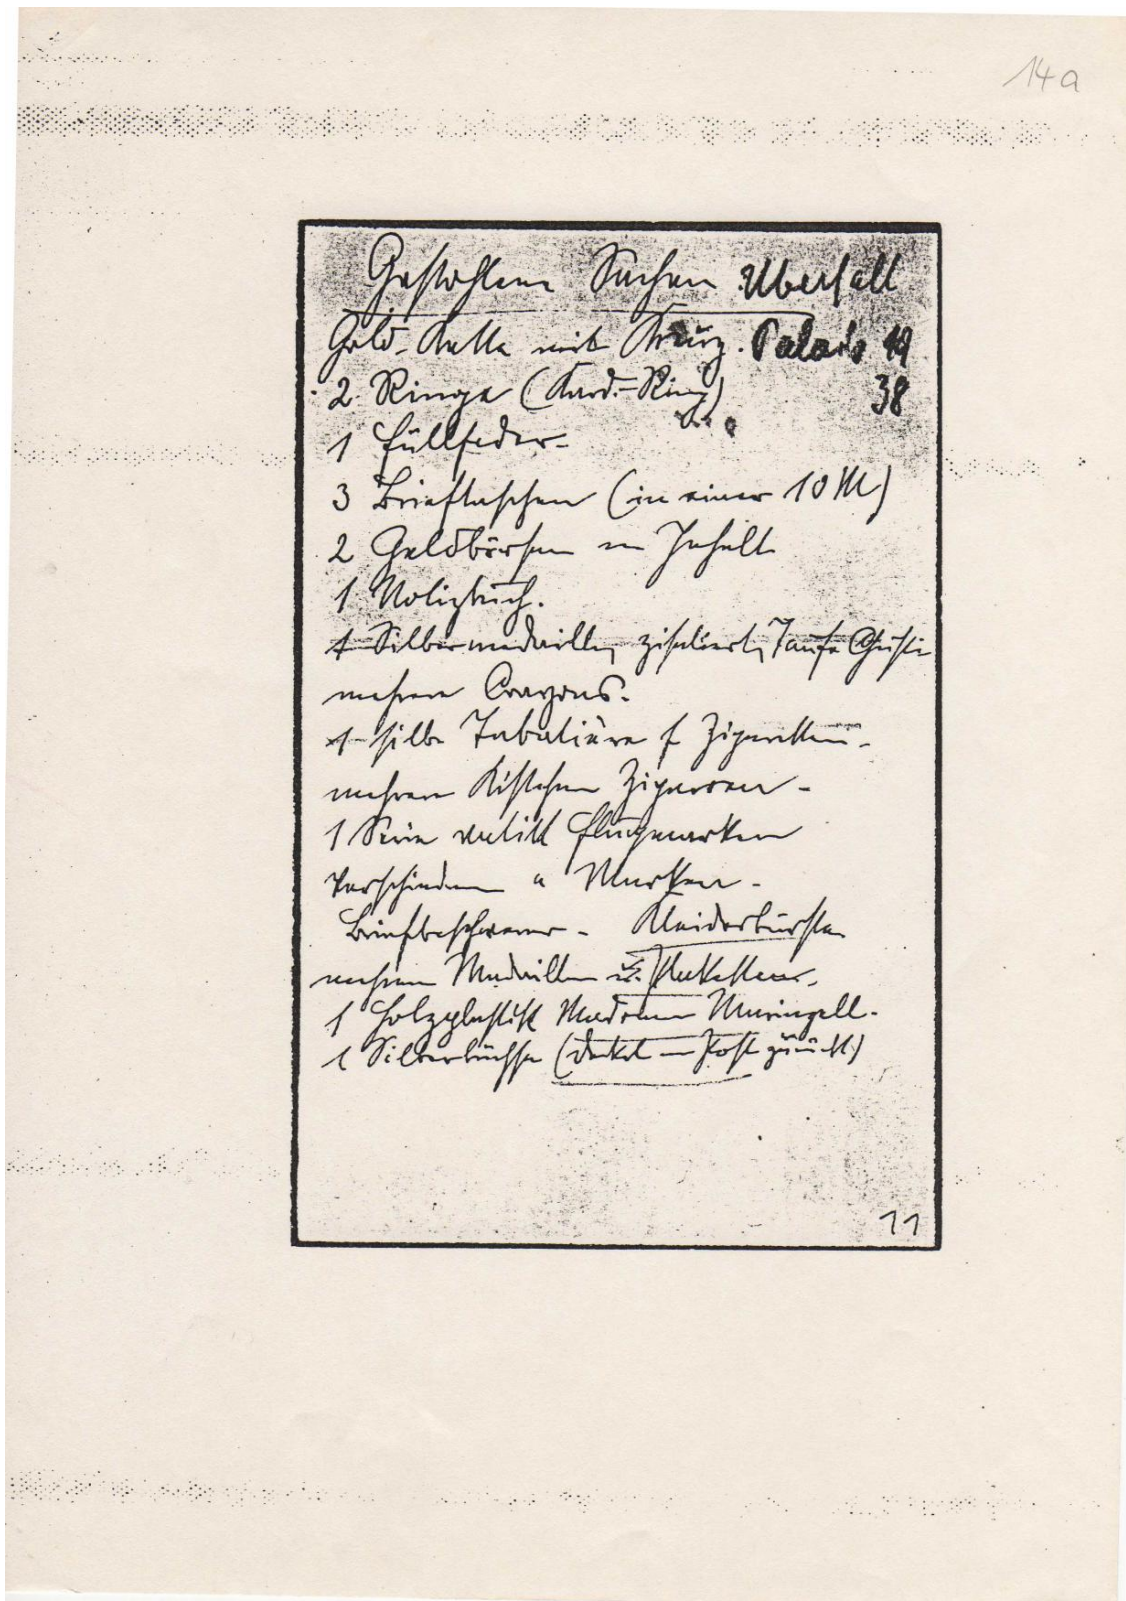 14a
Gestohlene Sachen Überfall
Gold-Kette mit Kreuz. Palais 19
38
2 Ringe (Kard.-Ring)
1 Füllfeder-
3 Brieftaschen (in einer 10 M)
2 Geldbörsen m Inhalt
1 Notizbuch.
1 Silbermedaille, ziseliert, Taufe Christi
mehrere Crayons.
1 silb. Tabatière f Zigaretten-
mehrere Kistchen Zigarren-
1 Serie vatik Flugmarken
Verschiedene a Marken-
Briefbeschwerer- Kleiderbürste
mehrere Medaillen u. Plaketten-
1 Holzplastik Madonna Mariazell.
1 Silberbüchse (Deckel Post zurück)
11